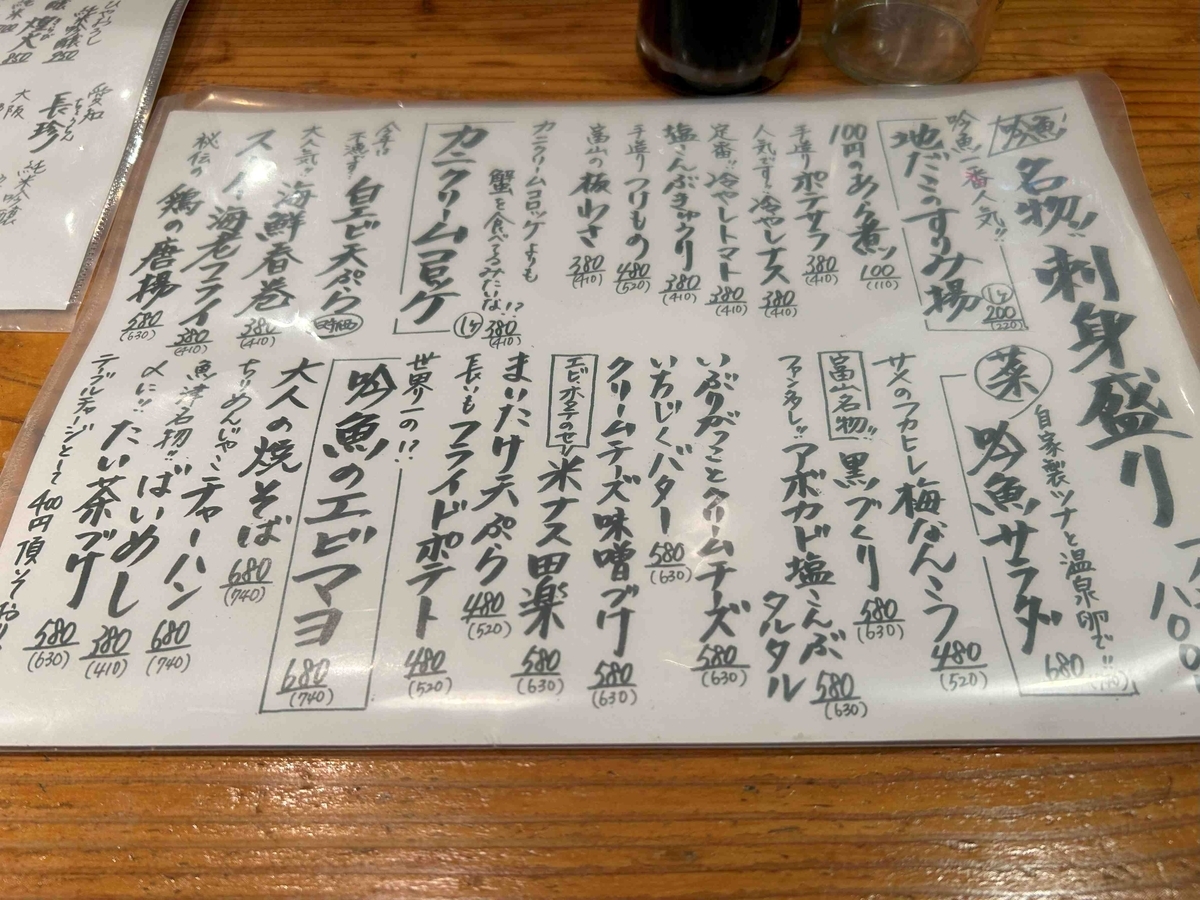 吟魚
名物!! 刺身盛り
吟魚一番人気!!
地だこのすりみ揚
1ヶ 200
(220)
100円のあら煮!!
100
(110)
手造りポテサラ
380
(410)
人気です!! 冷やしナス
380
(410)
定番!! 冷やしトマト
380
(410)
塩こんぶきゅうり
380
(410)
手造りつけもの
480
(520)
富山の板わさ
380
(410)
カニクリームコロッケよりも
蟹を食べてるみたいな!?
カニクリームコロッケ
1ヶ 380
(410)
不漁す 白エビ天ぷら
時価
大人気!! 海鮮春巻
380
(410)
海老フライ
380
(410)
秘伝の 鶏の唐揚
580
(630)
菜
自家製ツナと温泉卵で!!
吟魚サラダ
680
サメのフカヒレ梅なんこつ
480
(520)
富山名物!! 黒づくり
580
(630)
アボカド塩こんぶ
タルタル
580
(630)
いぶりがっことクリームチーズ
580
(630)
いちじくバター
580
(630)
クリームチーズ味噌づけ
580
(630)
米ナス田楽
580
(630)
まいたけ天ぷら
480
(520)
長いもフライドポテト
480
(520)
世界一の!?
吟魚のエビマヨ
680
(740)
大人の焼そば
680
(740)
ちりめんじゃこチャーハン
680
(740)
魚津名物!! ばいめし
380
(410)
〆に!! たい茶づけ
580
(630)
テーブルチャージとして400円頂いており
純米吟醸
850
愛知
長珍
大阪
純米吟醸